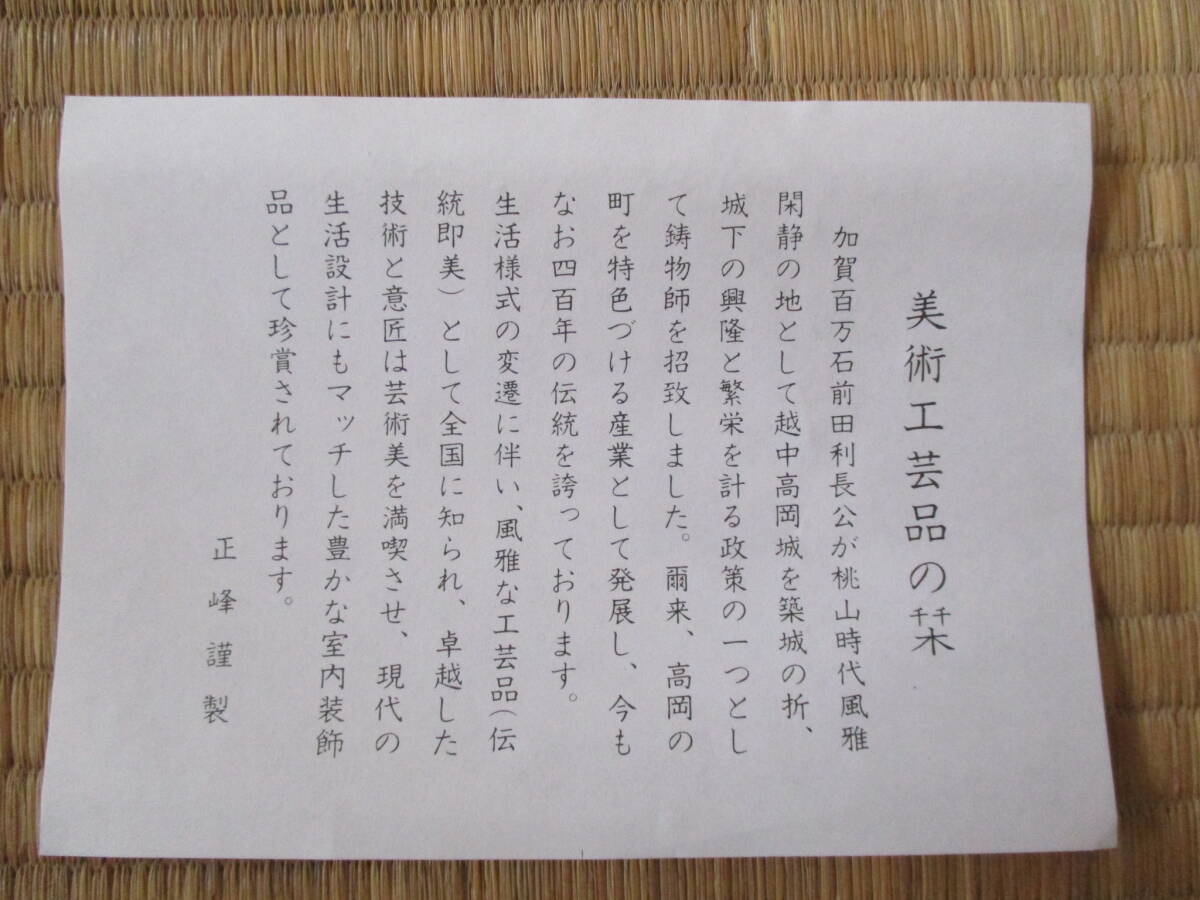 美術工芸品の栞
加賀百万石前田利長公が桃山時代風雅
閑静の地として越中高岡城を築城の折、
城下の興隆と繁栄を計る政策の一つとし
て鋳物師を招致しました。爾来、高岡の
町を特色づける産業として発展し、今も
なお四百年の伝統を誇っております。
生活様式の変遷に伴い、風雅な工芸品(伝
統即美)として全国に知られ、卓越した
技術と意匠は芸術美を満喫させ、現代の
生活設計にもマッチした豊かな室内装飾
品として珍賞されております。
正峰謹製